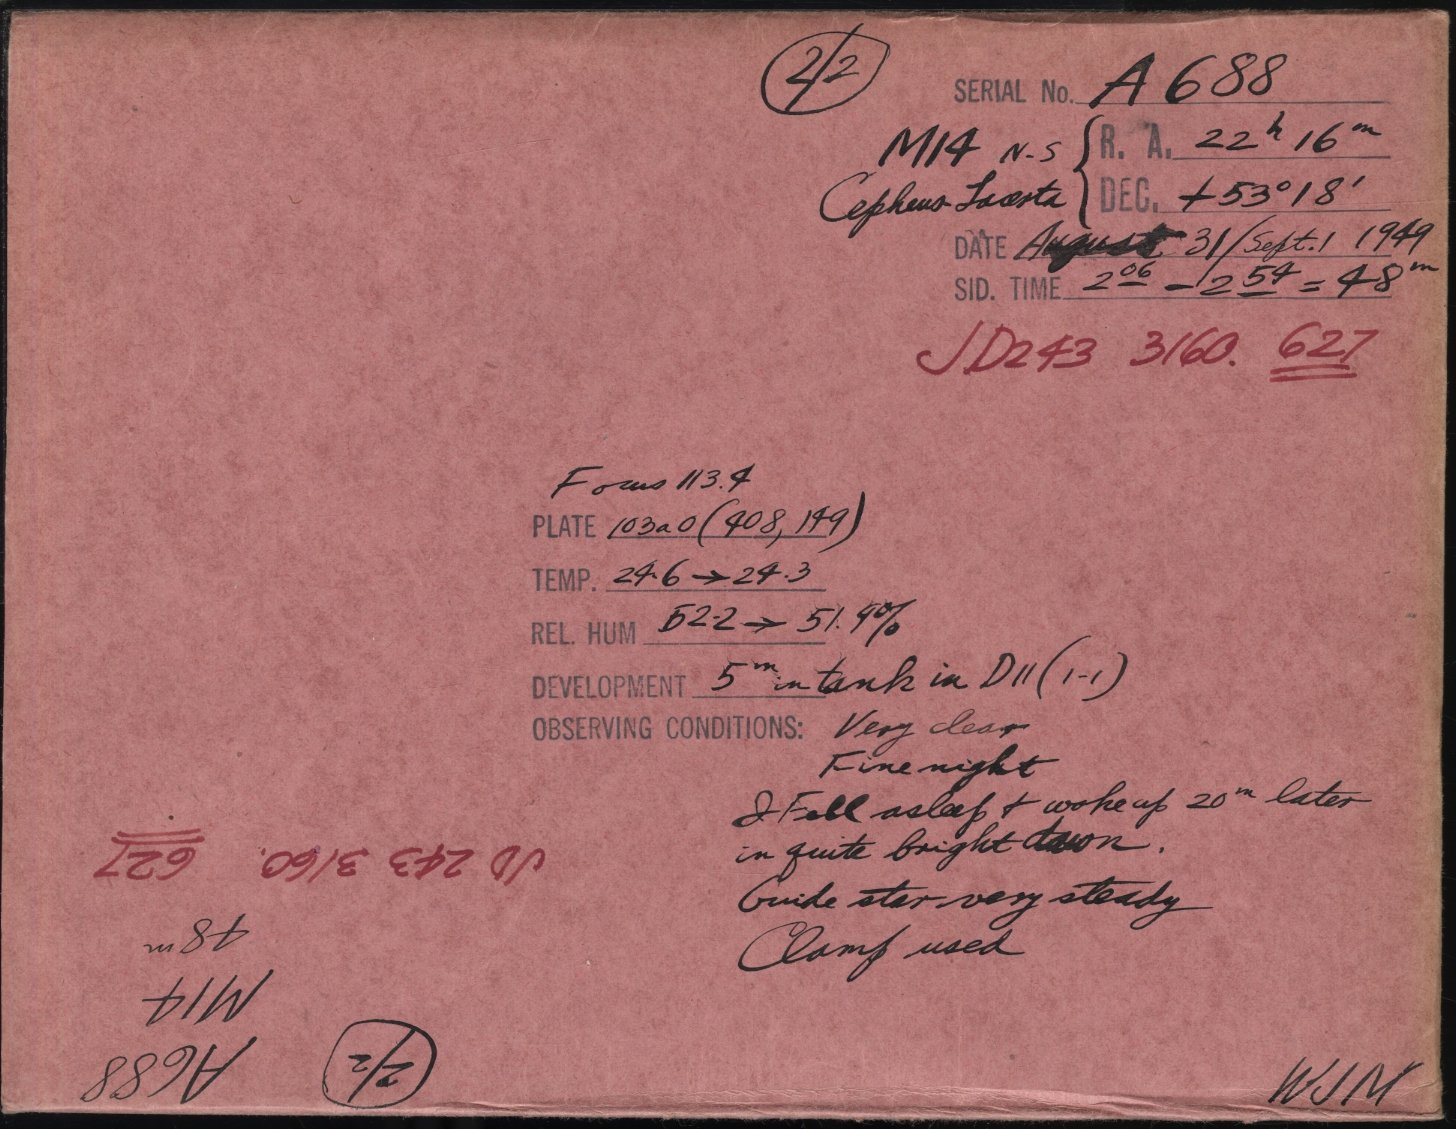 2/2
SERIAL No. A 688
M14 N-S { R. A. 22h 16m
Cepheus Lacerta { DEC. +53° 18'
DATE August 31/Sept. 1 1949
SID. TIME 2 06 – 2 54 = 48m
JD243 3160. 627
Focus 113.4
PLATE 103a0 (408, 149)
TEMP. 24.6 → 24.3
REL. HUM 52.2 → 51.9%
DEVELOPMENT 5m in tank in D11 (1-1)
OBSERVING CONDITIONS: Very clear
Fine night
I Fell asleep & woke up 20m later
in quite bright dawn.
Guide star very steady
Clamp used
WJM
2/2
A688
M14
48m
JD 243 3160. 627